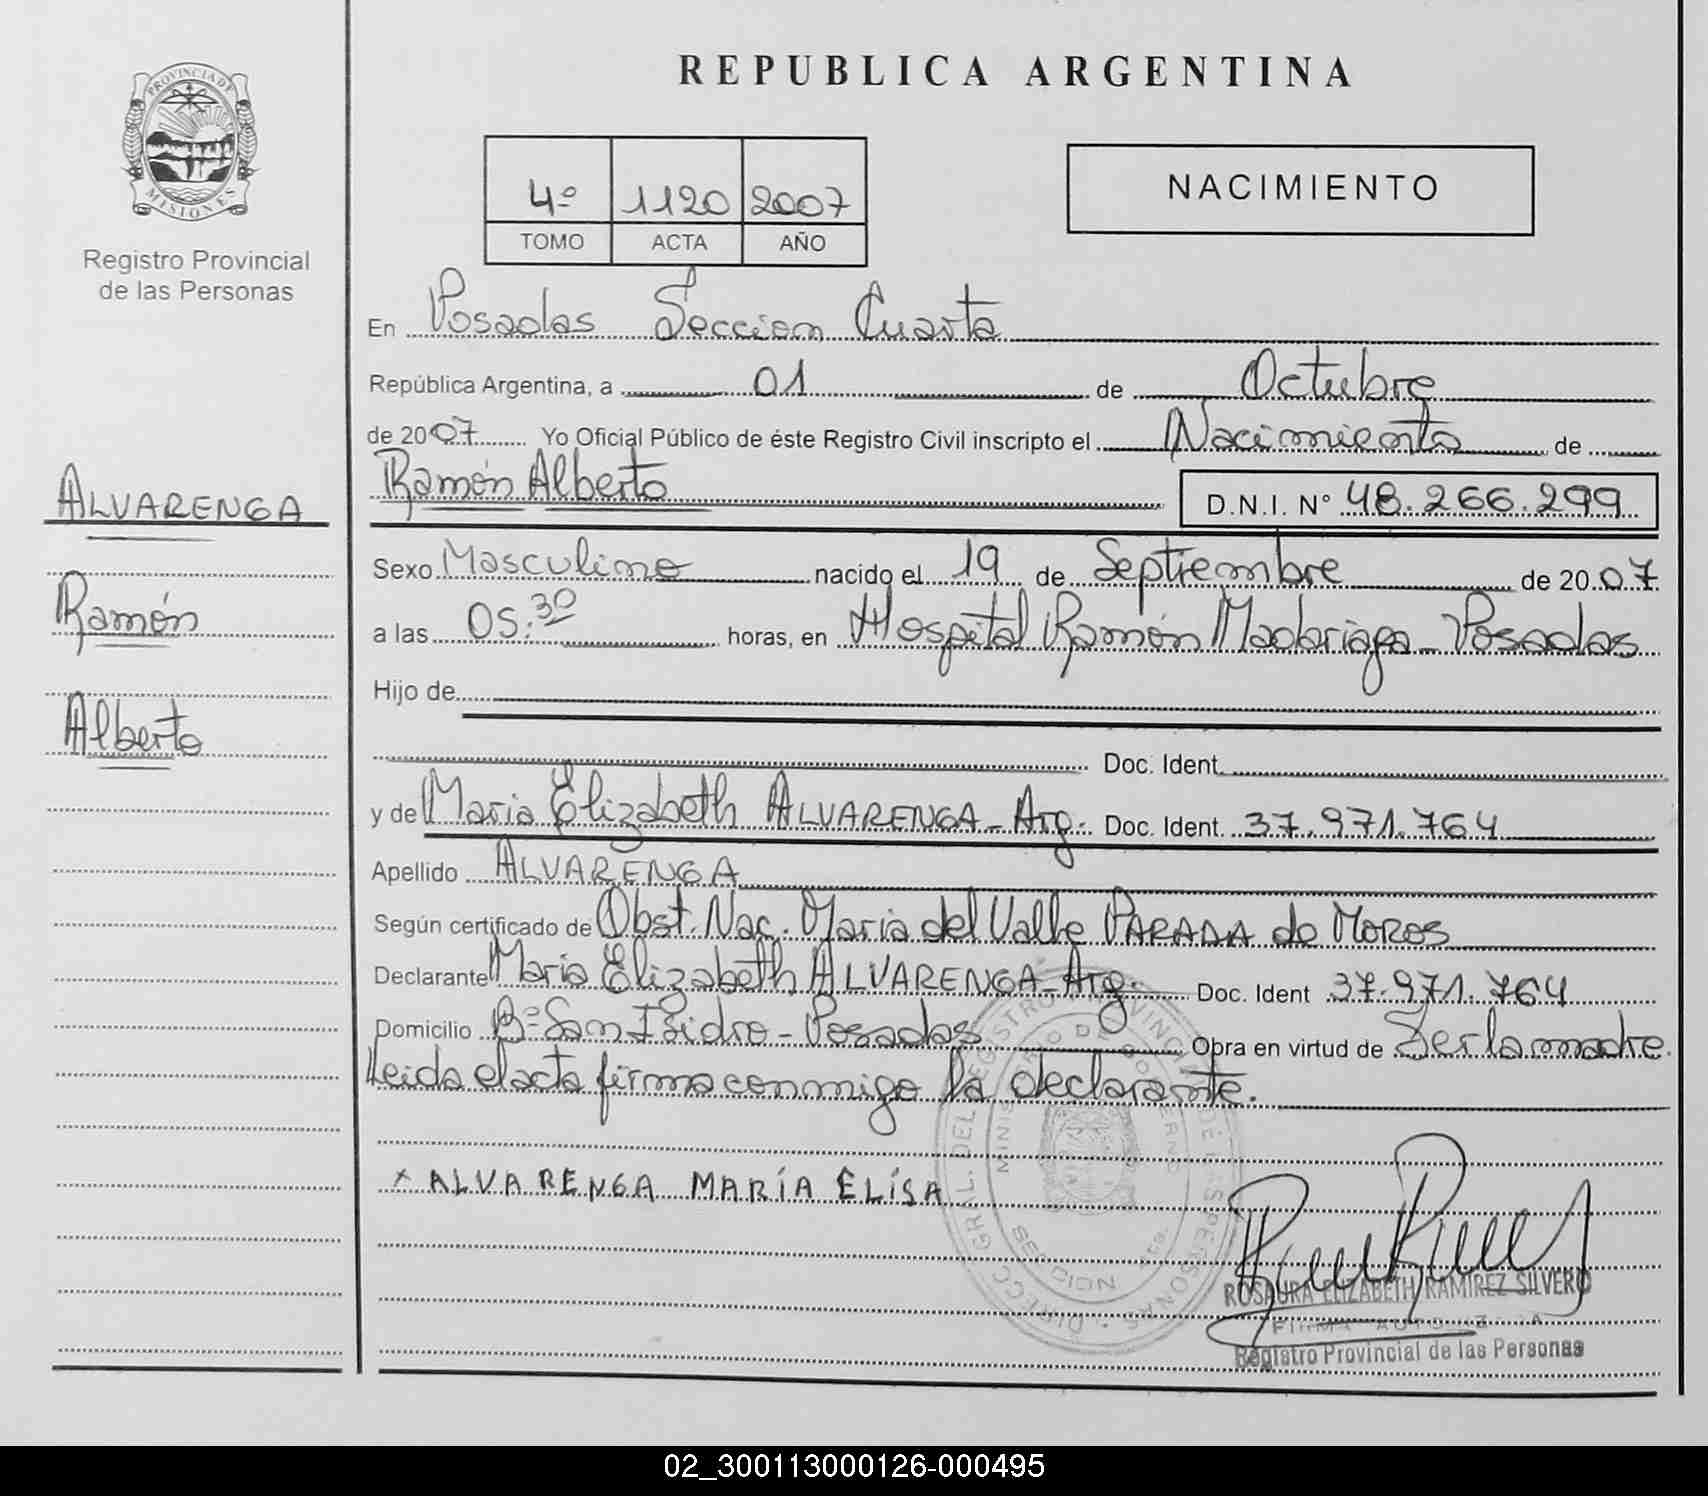 PROVINCIA DE
MISIONES
Registro Provincial
de las Personas
ALVARENGA
Ramón
Alberto
REPUBLICA ARGENTINA
4º 1120 2007
TOMO ACTA AÑO
NACIMIENTO
En Posadas Seccion Cuarta
República Argentina, a 01 de Octubre
de 2007 Yo Oficial Público de éste Registro Civil inscripto el Nacimiento de
Ramón Alberto D.N.I. Nº 48.266.299
Sexo Masculino nacido el 19 de Septiembre de 2007
a las 05:30 horas, en Hospital Ramón Madariaga - Posadas
Hijo de
Doc. Ident.
y de Maria Elizabeth ALVARENGA - Arg. Doc. Ident. 37.971.764
Apellido ALVARENGA
Según certificado de Obst. Nac. Maria del Valle PARADA de MOROS
Declarante Maria Elizabeth ALVARENGA - Arg. Doc. Ident 37.971.764
Domicilio Bº San Isidro - Posadas Obra en virtud de Ser la madre.
Leida el acta firma conmigo la declarante.
x ALVARENGA MARÍA ELÍSA
ROSAURA ELIZABETH RAMIREZ SILVERO
FIRMA AUTORIZADA
Registro Provincial de las Personas
02_300113000126-000495